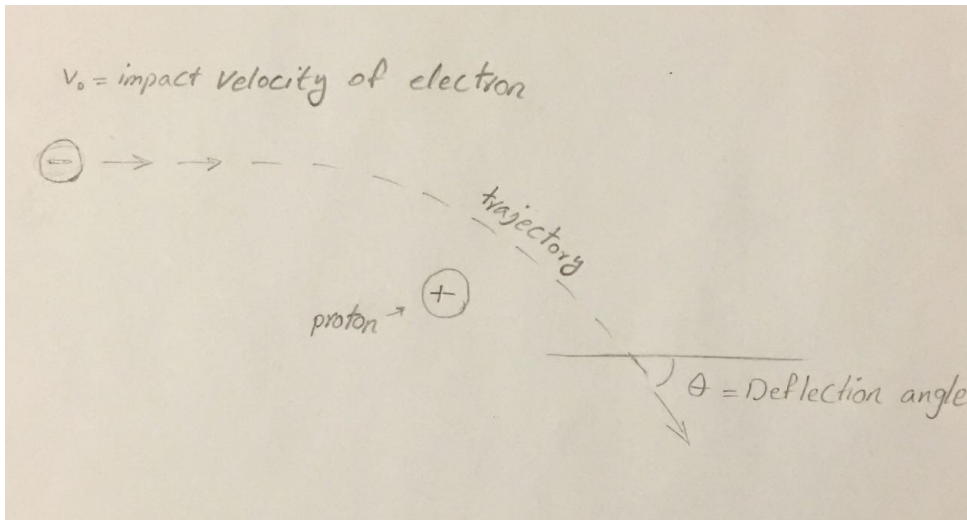 v₀ = impact velocity of electron
−
trajectory
+
proton →
θ = Deflection angle